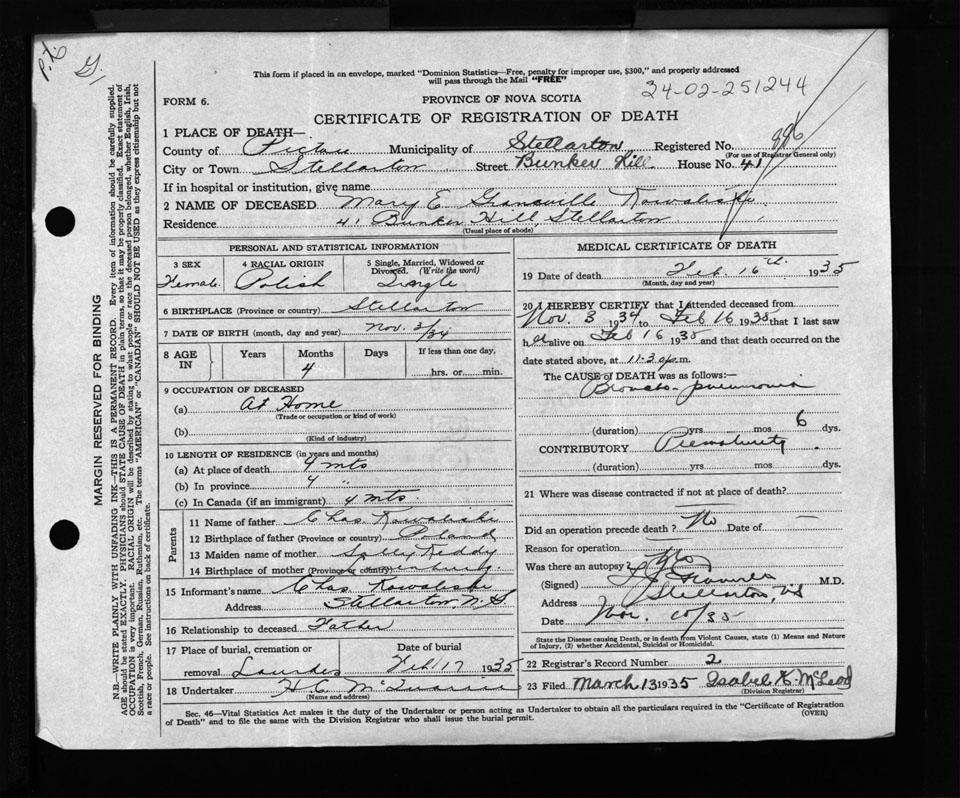 P.X.
G.
This form if placed in an envelope, marked "Dominion Statistics—Free, penalty for improper use, $300," and properly addressed
will pass through the Mail "FREE"
34-02-251244
FORM 6.
PROVINCE OF NOVA SCOTIA
CERTIFICATE OF REGISTRATION OF DEATH
996
1 PLACE OF DEATH—
County of Pictou Municipality of Stellarton Registered No.
(For use of Registrar General only)
City or Town Stellarton Street Bunker Hill House No. 41
If in hospital or institution, give name
2 NAME OF DECEASED Mary E. Granville Kowaliski
Residence 41 Bunker Hill, Stellarton
(Usual place of abode)
PERSONAL AND STATISTICAL INFORMATION
3 SEX Female
4 RACIAL ORIGIN Polish
5 Single, Married, Widowed or Divorced. (Write the word) Single
6 BIRTHPLACE (Province or country) Stellarton
7 DATE OF BIRTH (month, day and year) Nov. 3/34
8 AGE IN Years Months 4 Days If less than one day, hrs. or min.
9 OCCUPATION OF DECEASED
(a) At Home
(Trade or occupation or kind of work)
(b)
(Kind of industry)
10 LENGTH OF RESIDENCE (in years and months)
(a) At place of death 4 mts
(b) In province 4 "
(c) In Canada (if an immigrant) 4 mts.
Parents
11 Name of father Chas Kowaliski
12 Birthplace of father (Province or country) Poland
13 Maiden name of mother Sally Reddy
14 Birthplace of mother (Province or country)
15 Informant's name Chas Kowaliski
Address Stellarton, N.S
16 Relationship to deceased Father
17 Place of burial, cremation or removal Lourdes
Date of burial Feb 17 1935
18 Undertaker H C McQuarrie
(Name and address)
MEDICAL CERTIFICATE OF DEATH
19 Date of death Feb. 16th. 1935
(Month, day and year)
20 I HEREBY CERTIFY that I attended deceased from
Nov. 3 1934 to Feb 16 1935 that I last saw
her alive on Feb 16 1935 and that death occurred on the
date stated above, at 11.30 p.m.
The CAUSE of DEATH was as follows:—
Broncho-pneumonia
(duration) yrs mos 6 dys.
CONTRIBUTORY Prematurity
(duration) yrs mos dys.
21 Where was disease contracted if not at place of death?
Did an operation precede death? No Date of —
Reason for operation —
Was there an autopsy? No
(Signed) M.D.
Address Stellarton, NS
Date Nov. 10/35
State the Disease causing Death, or in death from Violent Causes, state (1) Means and Nature
of Injury, (2) whether Accidental, Suicidal or Homicidal.
22 Registrar's Record Number 2
23 Filed March 13 1935 Isabel K. McLeod
(Division Registrar)
Sec. 46—Vital Statistics Act makes it the duty of the Undertaker or person acting as Undertaker to obtain all the particulars required in the "Certificate of Registration
of Death" and to file the same with the Division Registrar who shall issue the burial permit.
(OVER)
MARGIN RESERVED FOR BINDING
N.B.—WRITE PLAINLY WITH UNFADING INK—THIS IS A PERMANENT RECORD. Every item of information should be carefully supplied.
AGE should be stated EXACTLY. PHYSICIANS should STATE CAUSE OF DEATH in plain terms, so that it may be properly classified. Exact statement of
OCCUPATION is very important. RACIAL ORIGIN will be described by stating to what people or race the deceased person belonged, whether English, Irish,
Scottish, French, German, Russian, Ruthenian, etc. The terms "AMERICAN" or "CANADIAN" SHOULD NOT BE USED as they express citizenship but not
a race or people. See instructions on back of certificate.